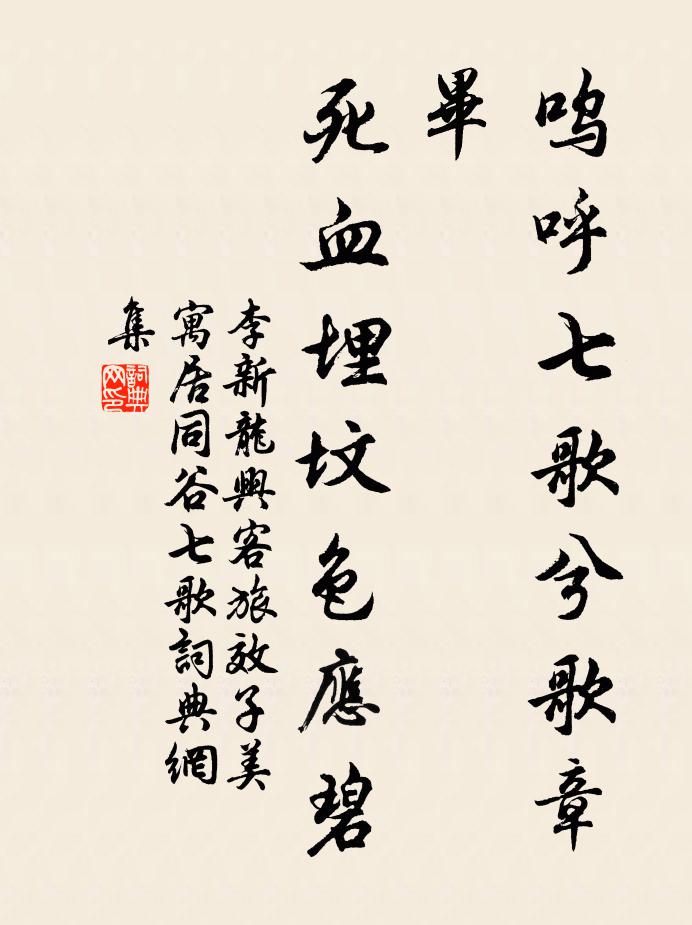 嗚呼七歌兮歌章
畢
死血埋坟色應碧
李新龍興客旅效子美
寓居同谷七歌詞典網
集
詞典
网印